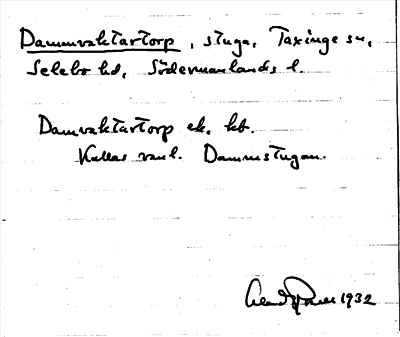 Dammvaktartorp, stuga, Taxinge sn,
Selebo hd, Södermanlands l.
Damvaktartorp ek. kb.
Kallas vanl. Dammstugan.
1932